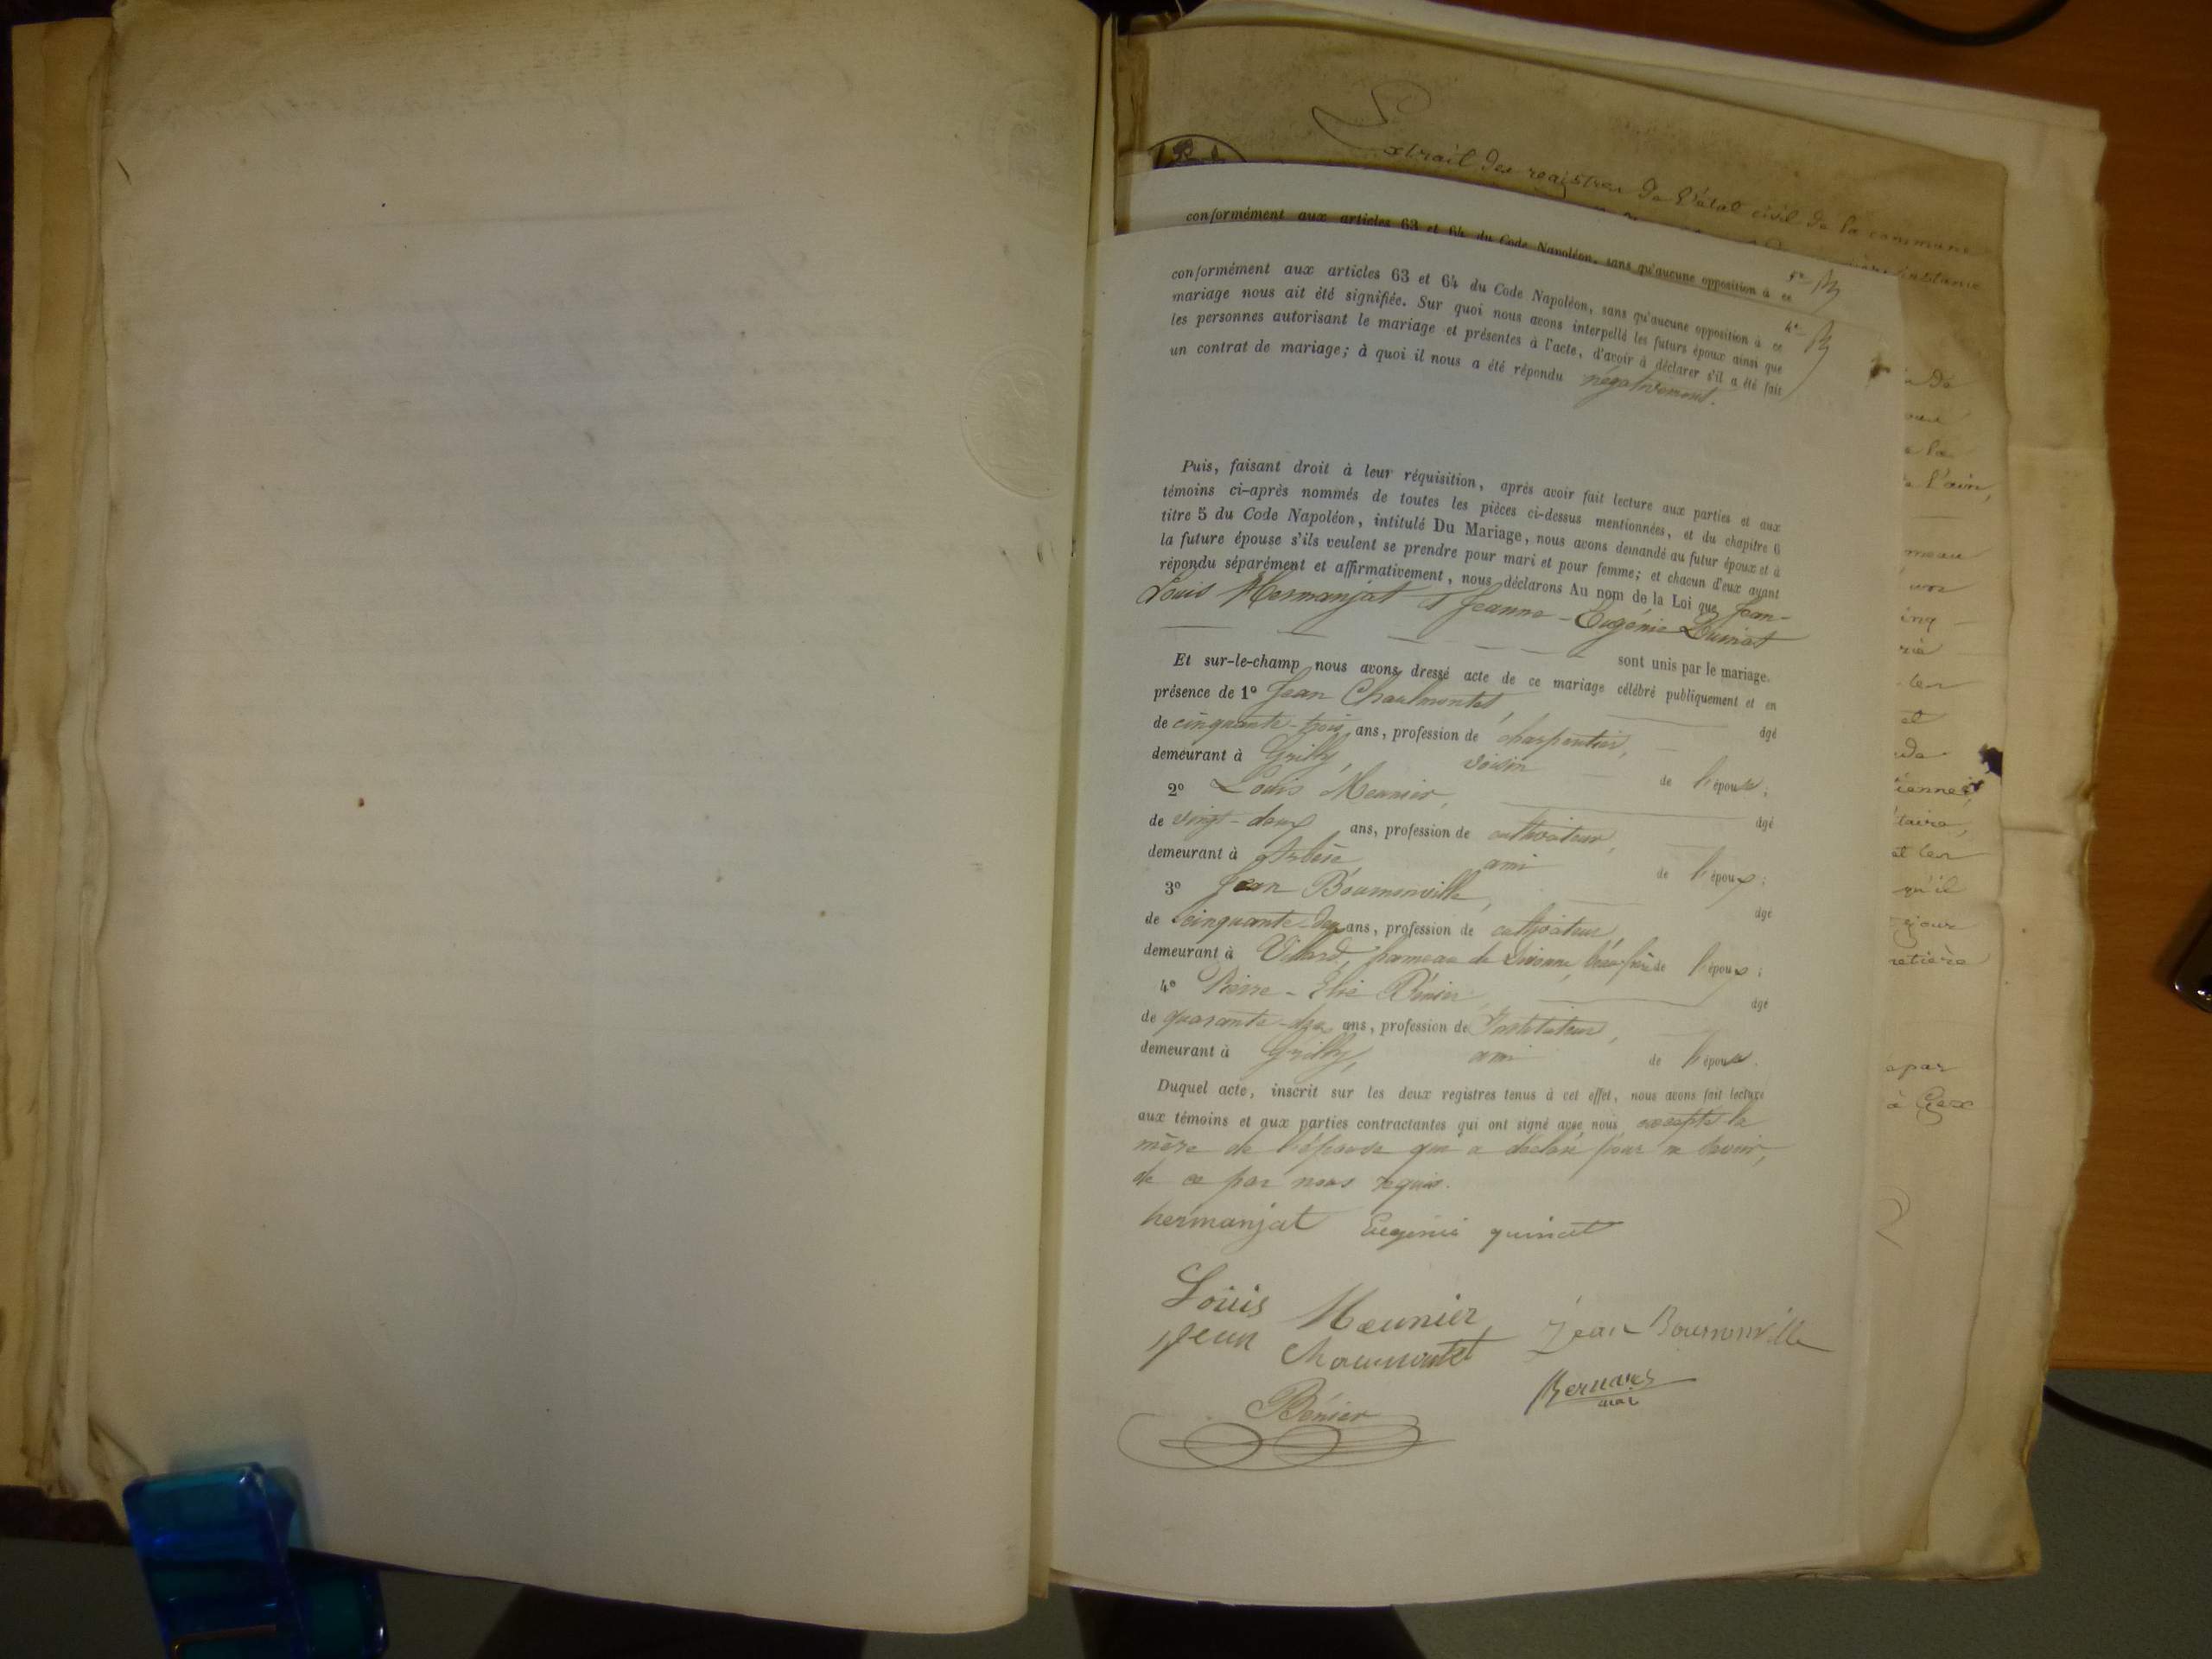 Extrait des registres de l'état civil de la commune
conformément aux articles 63 et 64 du Code Napoléon, sans qu'aucune opposition à ce
conformément aux articles 63 et 64 du Code Napoléon, sans qu'aucune opposition à ce
mariage nous ait été signifiée. Sur quoi nous avons interpellé les futurs époux ainsi que
les personnes autorisant le mariage et présentes à l'acte, d'avoir à déclarer s'il a été fait
un contrat de mariage; à quoi il nous a été répondu négativement.
Puis, faisant droit à leur réquisition, après avoir fait lecture aux parties et aux
témoins ci-après nommés de toutes les pièces ci-dessus mentionnées, et du chapitre 6
titre 5 du Code Napoléon, intitulé Du Mariage, nous avons demandé au futur époux et à
la future épouse s'ils veulent se prendre pour mari et pour femme; et chacun d'eux ayant
répondu séparément et affirmativement, nous déclarons Au nom de la Loi que Jean-
Louis Hermanjat et Jeanne-Eugénie Quinat
sont unis par le mariage.
Et sur-le-champ nous avons dressé acte de ce mariage célébré publiquement et en
présence de 1º Jean Chaulmontet, âgé
de cinquante-trois ans, profession de charpentier,
demeurant à Grilly, voisin de l'épouse;
2º Louis Meunier, âgé
de vingt-deux ans, profession de cultivateur,
demeurant à Arbère ami de l'époux;
3º Jean Bournonville, âgé
de cinquante-deux ans, profession de cultivateur
demeurant à Villard, hameau de Divonne, beau-frère de l'époux;
4º Pierre-Elie Bénier, âgé
de quarante-deux ans, profession de Instituteur,
demeurant à Grilly, ami de l'épouse.
Duquel acte, inscrit sur les deux registres tenus à cet effet, nous avons fait lecture
aux témoins et aux parties contractantes qui ont signé avec nous excepté la
mère de l'épouse qui a déclaré ne savoir,
de ce par nous requis.
hermanjat Eugénie quinat
Louis Meunier Jean Bournonville
Jean Chaumontet
Bénier